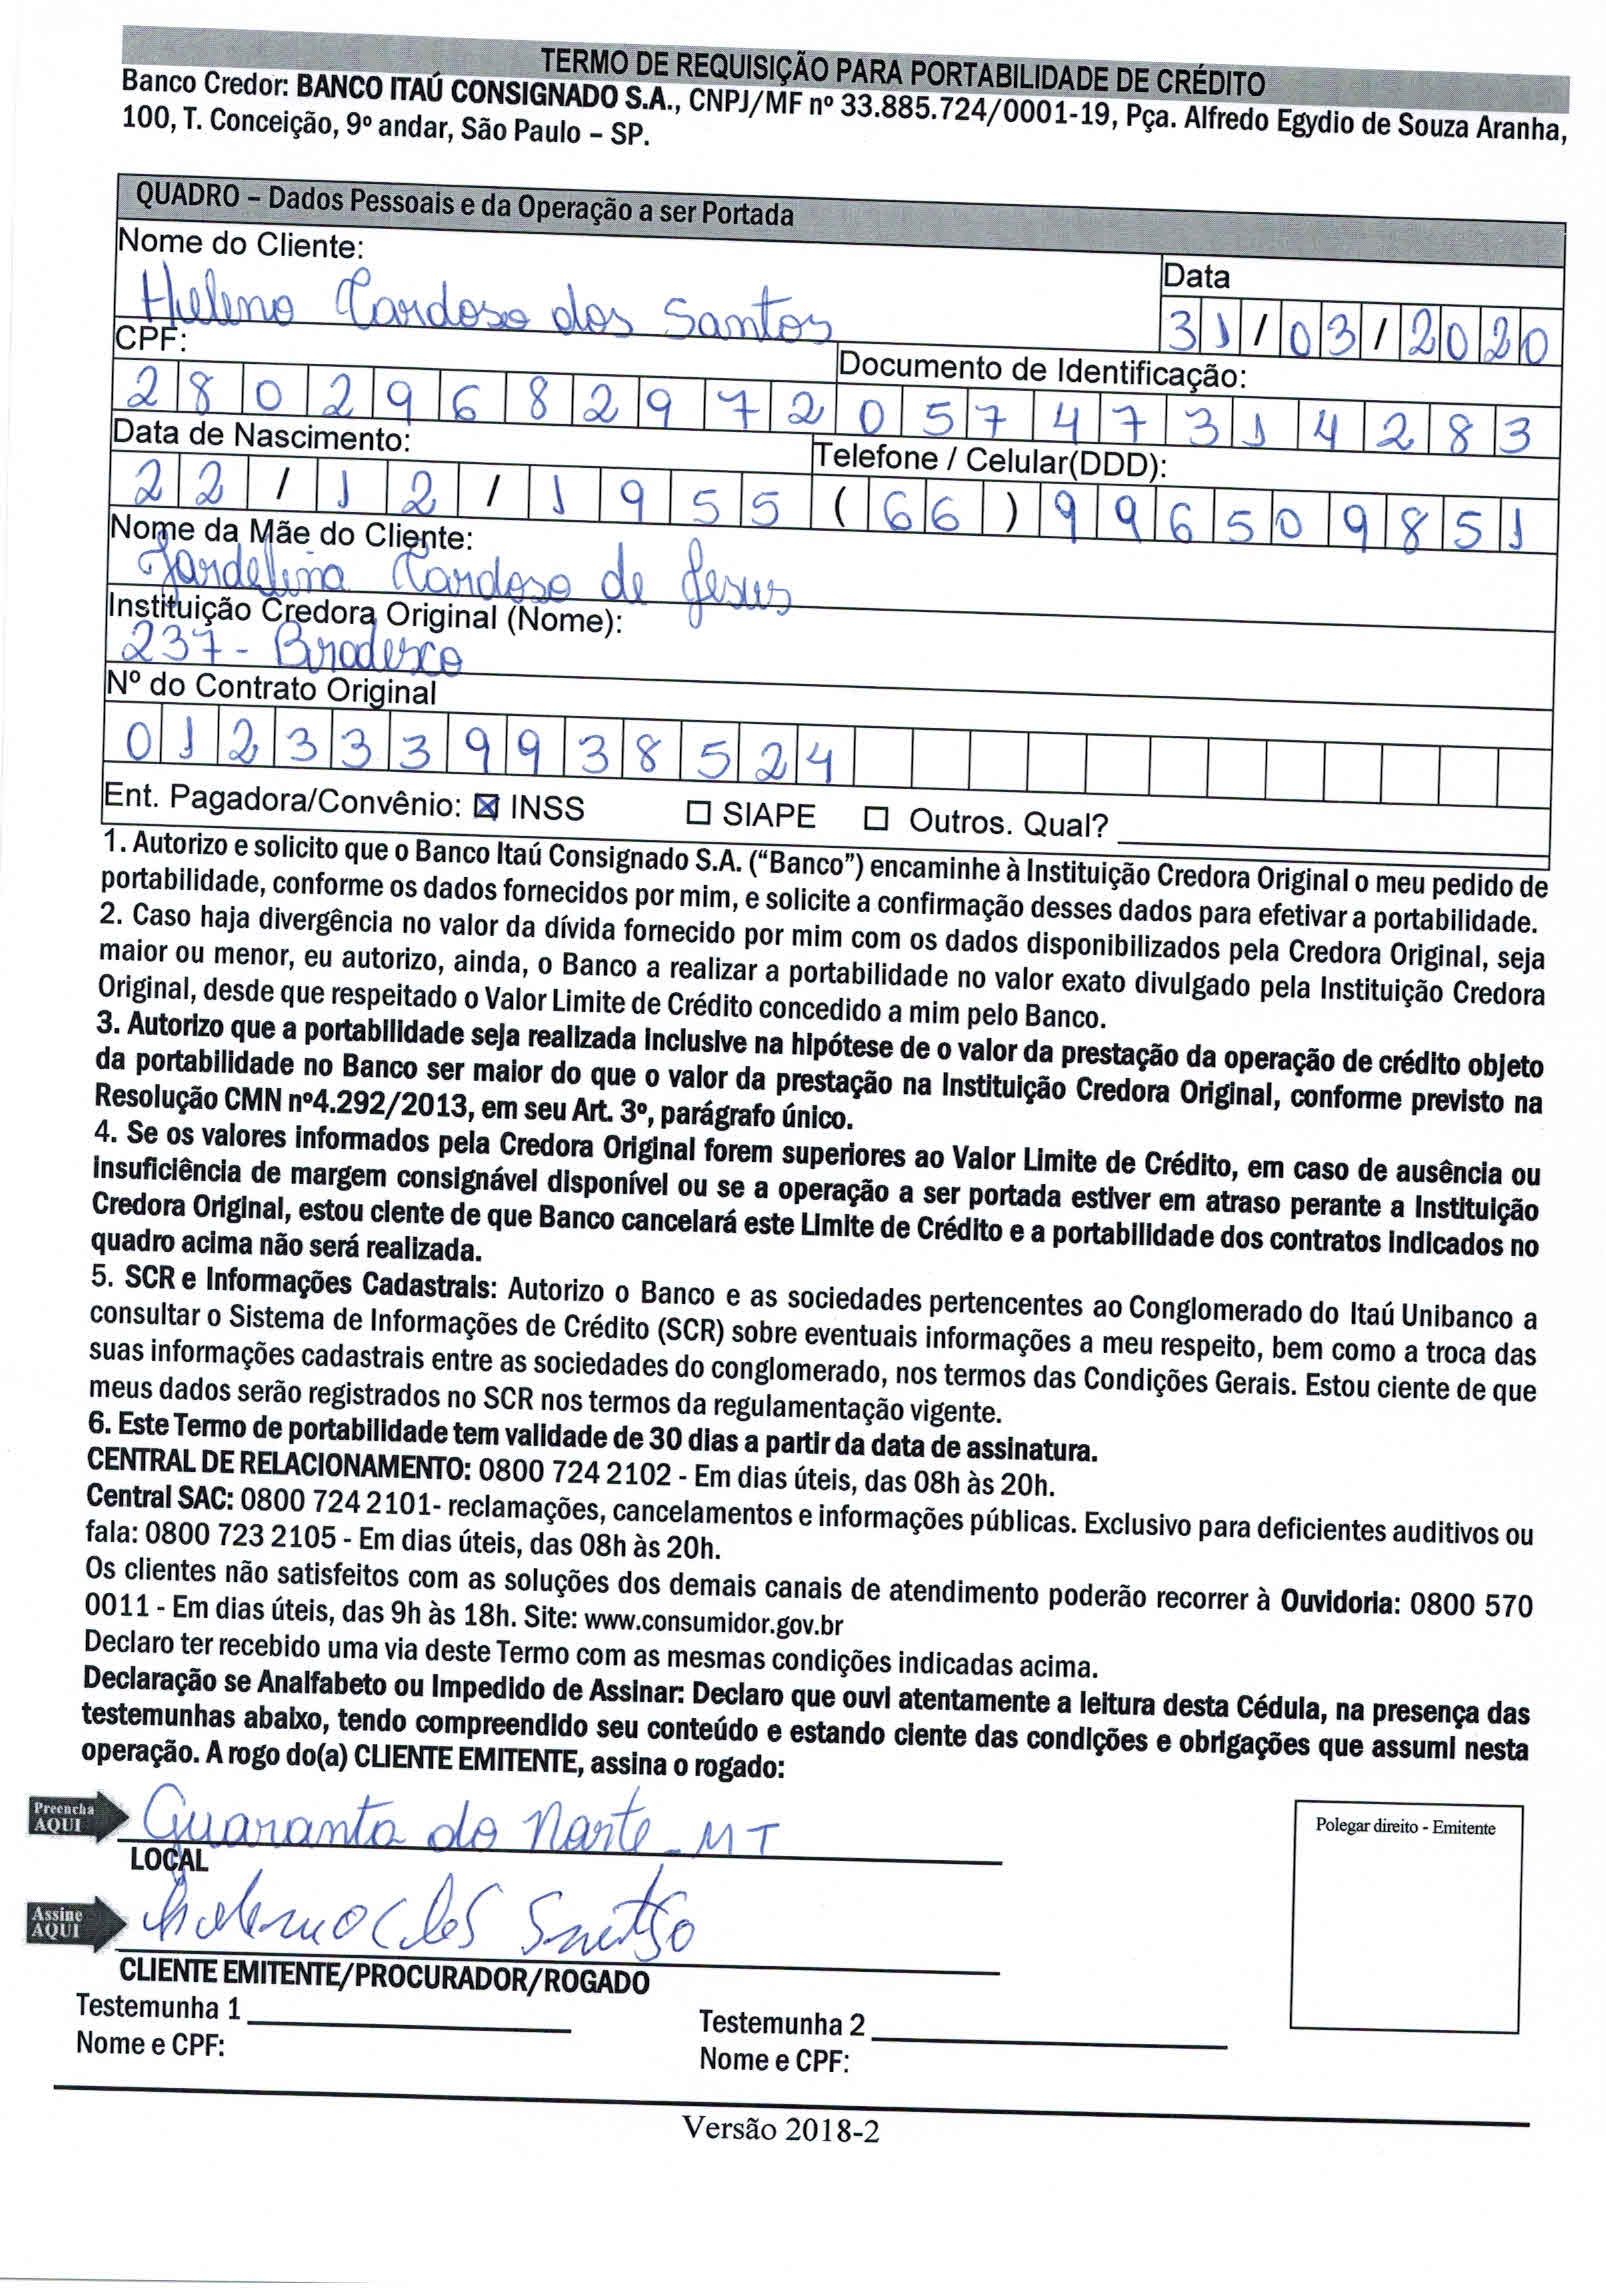 TERMO DE REQUISIÇÃO PARA PORTABILIDADE DE CRÉDITO
Banco Credor: BANCO ITAÚ CONSIGNADO S.A., CNPJ/MF nº 33.885.724/0001-19, Pça. Alfredo Egydio de Souza Aranha,
100, T. Conceição, 9º andar, São Paulo – SP.
QUADRO – Dados Pessoais e da Operação a ser Portada
Nome do Cliente:
Heleno Cardoso dos Santos
Data
31/03/2020
CPF:
28029682972
Documento de Identificação:
05747314283
Data de Nascimento:
22/12/1955
Telefone / Celular(DDD):
(66)996509851
Nome da Mãe do Cliente:
Jardelina Cardoso de Jesus
Instituição Credora Original (Nome):
237 - Bradesco
Nº do Contrato Original
0123339938524
Ent. Pagadora/Convênio: ☒ INSS ☐ SIAPE ☐ Outros. Qual?
1. Autorizo e solicito que o Banco Itaú Consignado S.A. (“Banco”) encaminhe à Instituição Credora Original o meu pedido de
portabilidade, conforme os dados fornecidos por mim, e solicite a confirmação desses dados para efetivar a portabilidade.
2. Caso haja divergência no valor da dívida fornecido por mim com os dados disponibilizados pela Credora Original, seja
maior ou menor, eu autorizo, ainda, o Banco a realizar a portabilidade no valor exato divulgado pela Instituição Credora
Original, desde que respeitado o Valor Limite de Crédito concedido a mim pelo Banco.
3. Autorizo que a portabilidade seja realizada inclusive na hipótese de o valor da prestação da operação de crédito objeto
da portabilidade no Banco ser maior do que o valor da prestação na Instituição Credora Original, conforme previsto na
Resolução CMN nº4.292/2013, em seu Art. 3º, parágrafo único.
4. Se os valores informados pela Credora Original forem superiores ao Valor Limite de Crédito, em caso de ausência ou
insuficiência de margem consignável disponível ou se a operação a ser portada estiver em atraso perante a Instituição
Credora Original, estou ciente de que Banco cancelará este Limite de Crédito e a portabilidade dos contratos indicados no
quadro acima não será realizada.
5. SCR e Informações Cadastrais: Autorizo o Banco e as sociedades pertencentes ao Conglomerado do Itaú Unibanco a
consultar o Sistema de Informações de Crédito (SCR) sobre eventuais informações a meu respeito, bem como a troca das
suas informações cadastrais entre as sociedades do conglomerado, nos termos das Condições Gerais. Estou ciente de que
meus dados serão registrados no SCR nos termos da regulamentação vigente.
6. Este Termo de portabilidade tem validade de 30 dias a partir da data de assinatura.
CENTRAL DE RELACIONAMENTO: 0800 724 2102 - Em dias úteis, das 08h às 20h.
Central SAC: 0800 724 2101- reclamações, cancelamentos e informações públicas. Exclusivo para deficientes auditivos ou
fala: 0800 723 2105 - Em dias úteis, das 08h às 20h.
Os clientes não satisfeitos com as soluções dos demais canais de atendimento poderão recorrer à Ouvidoria: 0800 570
0011 - Em dias úteis, das 9h às 18h. Site: www.consumidor.gov.br
Declaro ter recebido uma via deste Termo com as mesmas condições indicadas acima.
Declaração se Analfabeto ou Impedido de Assinar: Declaro que ouvi atentamente a leitura desta Cédula, na presença das
testemunhas abaixo, tendo compreendido seu conteúdo e estando ciente das condições e obrigações que assumi nesta
operação. A rogo do(a) CLIENTE EMITENTE, assina o rogado:
Preencha
AQUI
Guaranta do Norte - MT
LOCAL
Polegar direito - Emitente
Assine
AQUI
Heleno C dos Santos
CLIENTE EMITENTE/PROCURADOR/ROGADO
Testemunha 1
Testemunha 2
Nome e CPF:
Nome e CPF:
Versão 2018-2